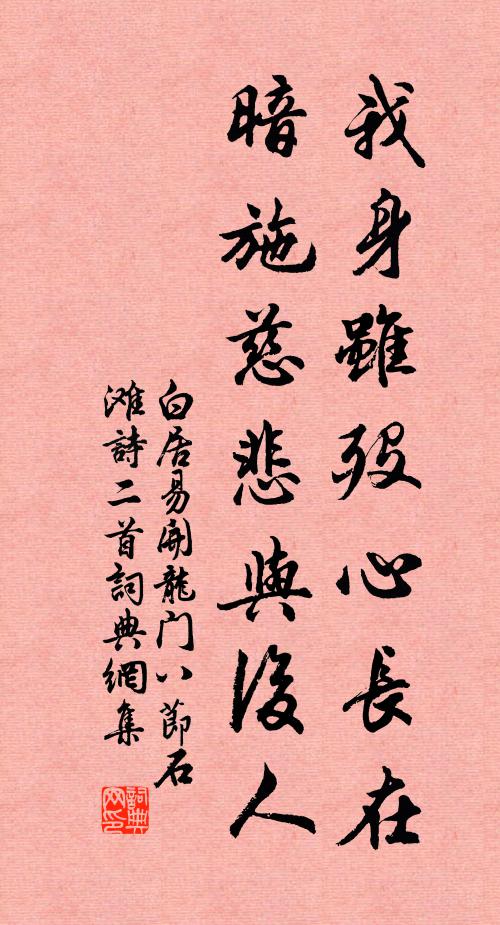 我身雖歿心長在
暗施慈悲與後人
白居易開龍门八節石
滩詩二首詞典網集
詞典
网印